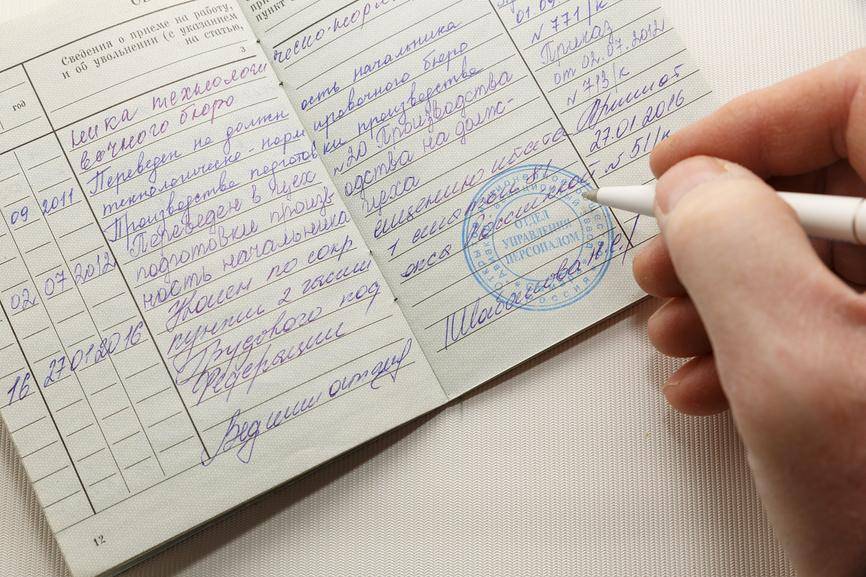 Сведения о приеме на работу,
и об увольнении (с указанием
на статью,
пункт
год
3
ника технологи
вочного бюро
Переведен на должн
ость начальника
технологическо-норм
ировочного бюро
09 2011
Производства подготов
ки производства
Переведен в цех
№20 Производства
подготовки произв
одства на долж-
02 07 2012
ность начальника
цеха
Уволен по сокр
ащению штата
пункт 2 части
1 статьи 81
16 27 01 2016
Трудового код
екса Российской
Федерации
№ 771/к
Приказ
от 02.07.2012
№ 713/к
Приказ от
27.01.2016
№ 511/к
ОТДЕЛ
УПРАВЛЕНИЯ
ПЕРСОНАЛОМ
РОССИЯ
12